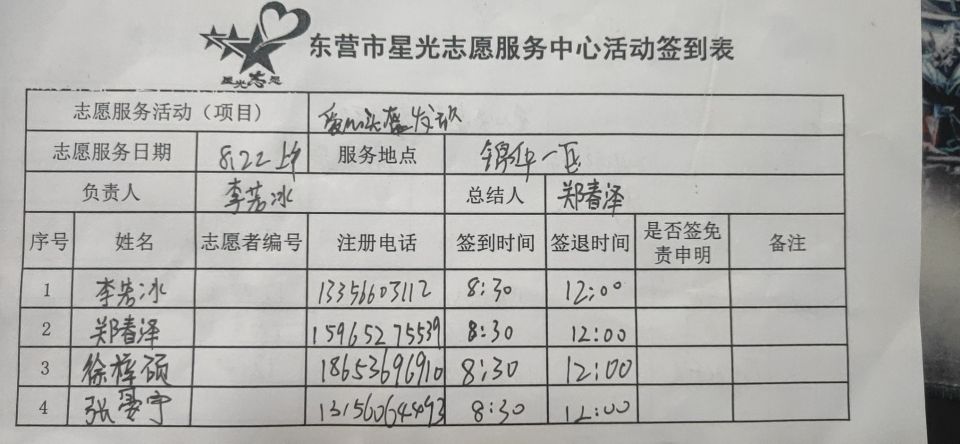 东营市星光志愿服务中心活动签到表
星光志愿
志愿服务活动（项目） 爱心头盔发放
志愿服务日期 8.22上午 服务地点 锦华一区
负责人 李若冰 总结人 郑春泽
序号 姓名 志愿者编号 注册电话 签到时间 签退时间 是否签免责申明 备注
1 李若冰 13356603112 8:30 12:00
2 郑春泽 15965275539 8:30 12:00
3 徐梓硕 18653696910 8:30 12:00
4 张雯宇 13156064493 8:30 12:00